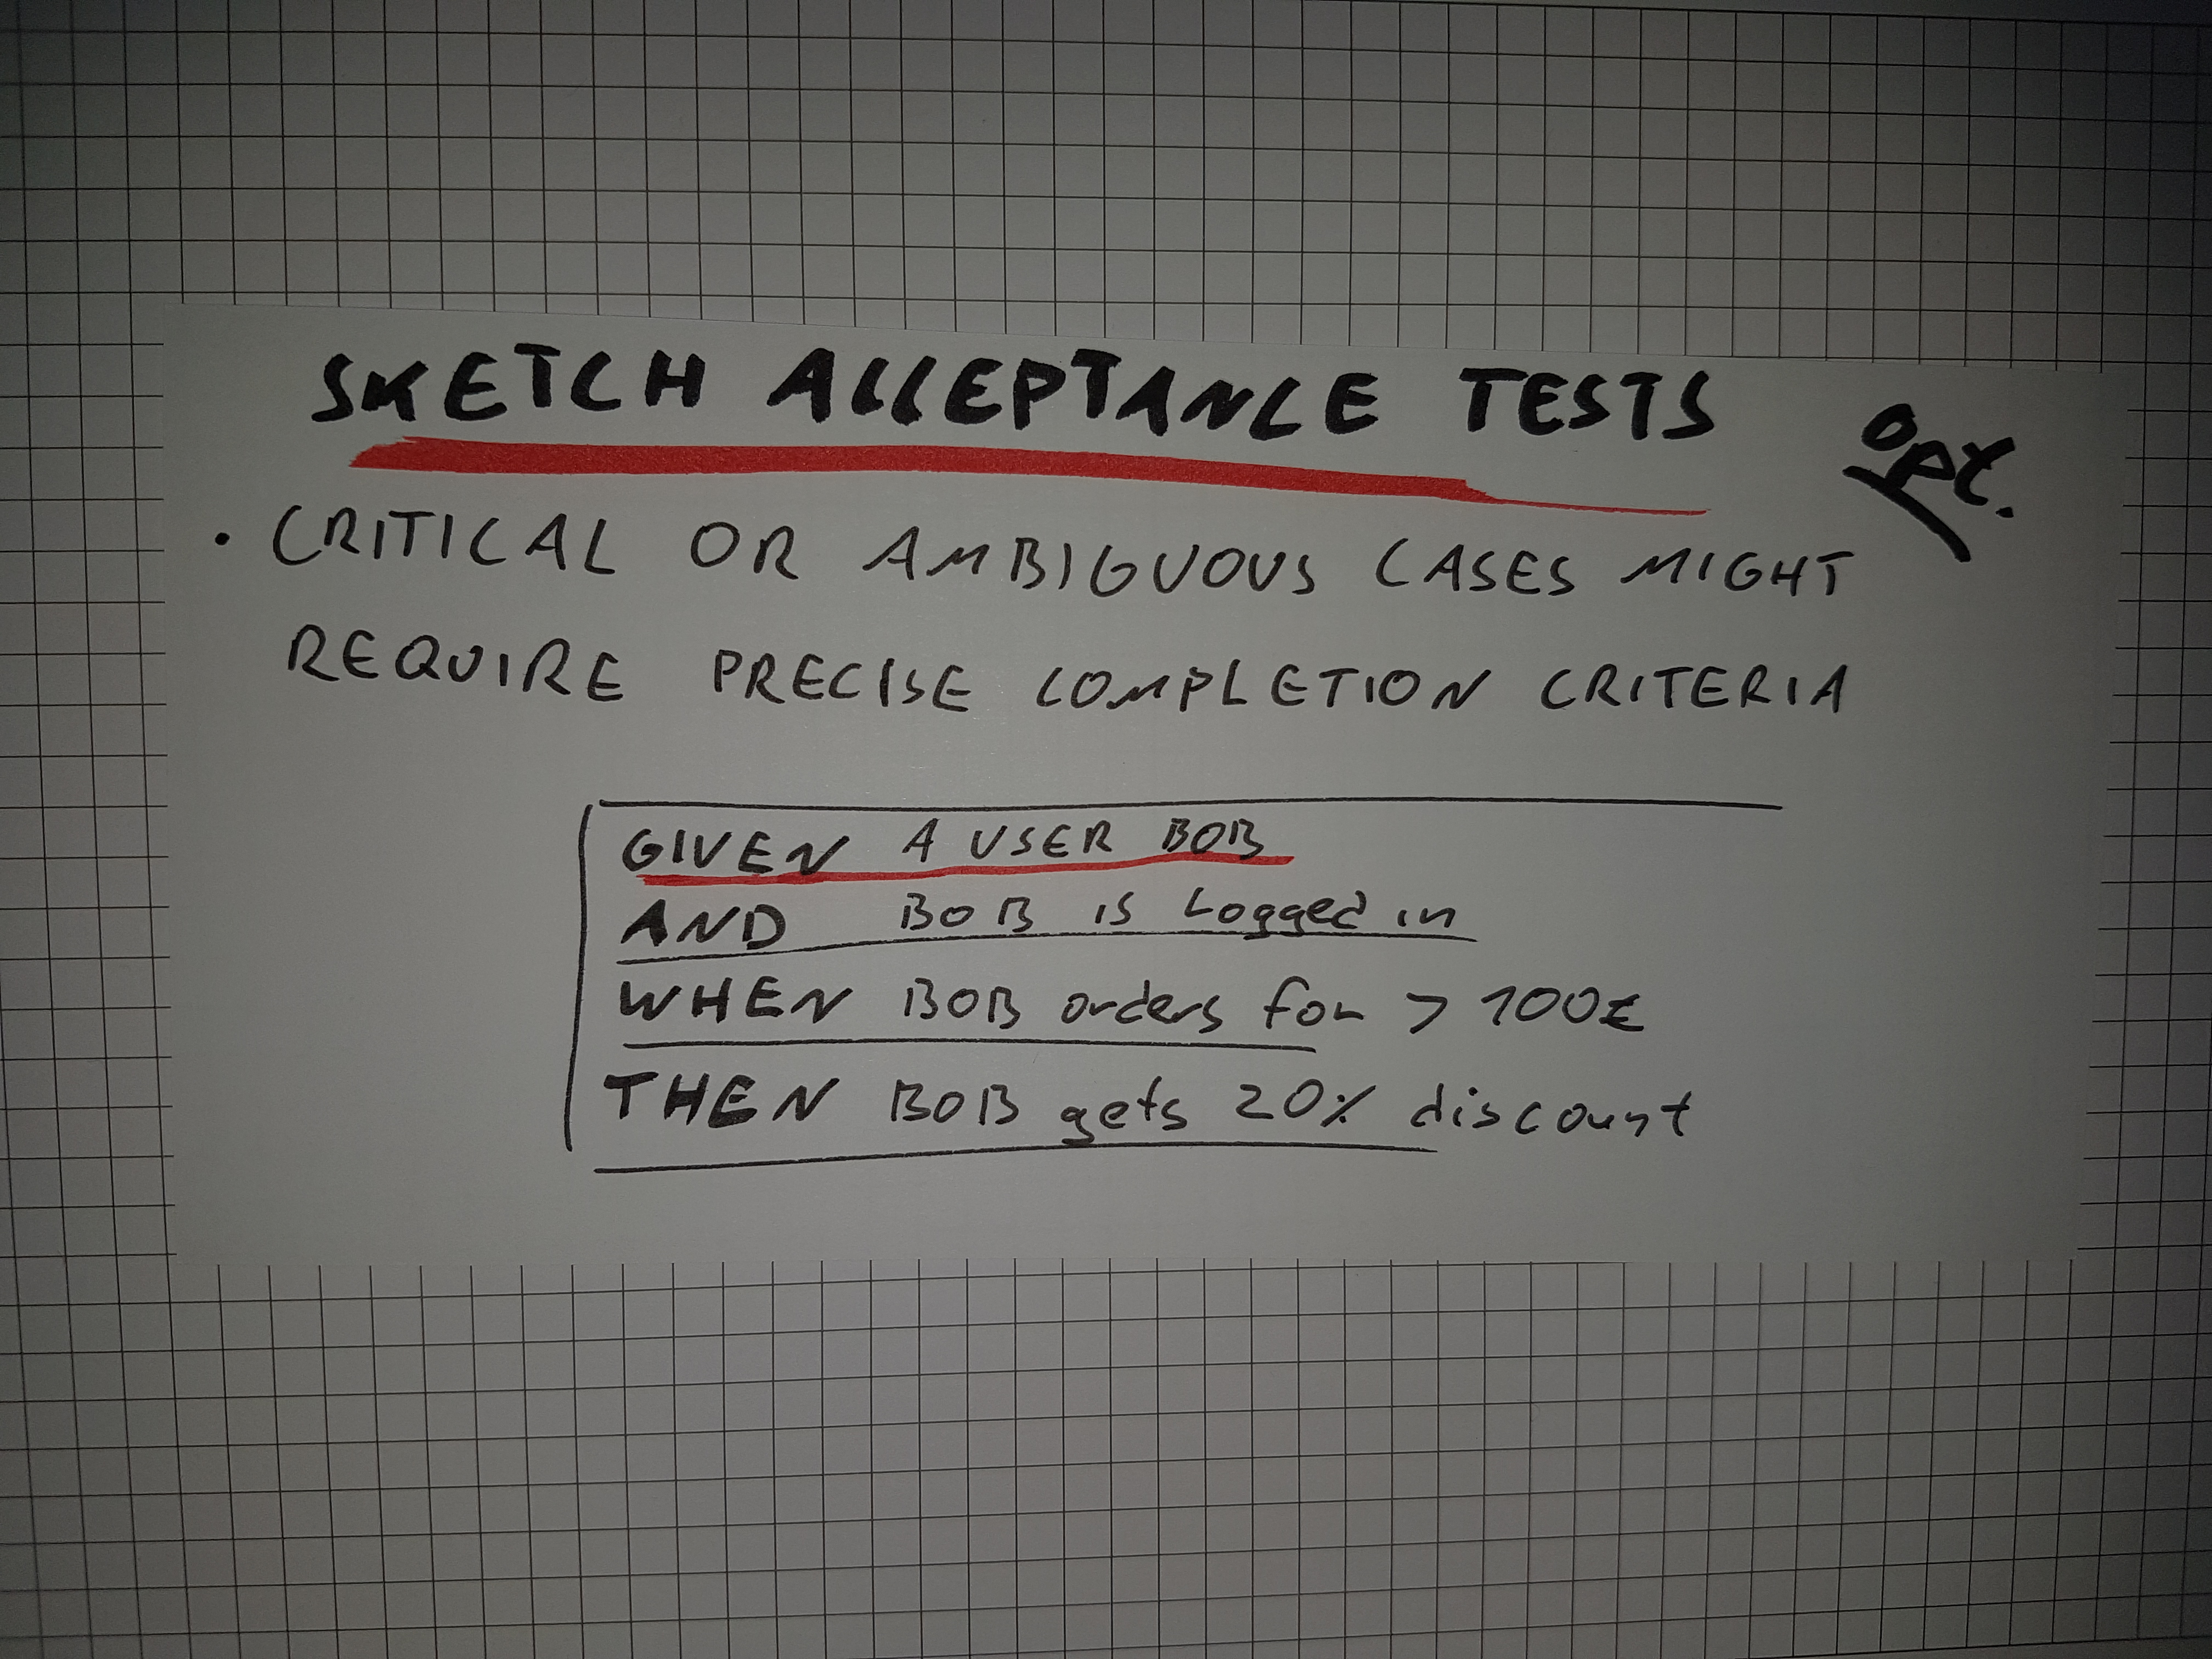 SKETCH ACCEPTANCE TESTS
opt.
· CRITICAL OR AMBIGUOUS CASES MIGHT
REQUIRE PRECISE COMPLETION CRITERIA
GIVEN A USER BOB
AND BOB is Logged in
WHEN BOB orders for > 100€
THEN BOB gets 20% discount